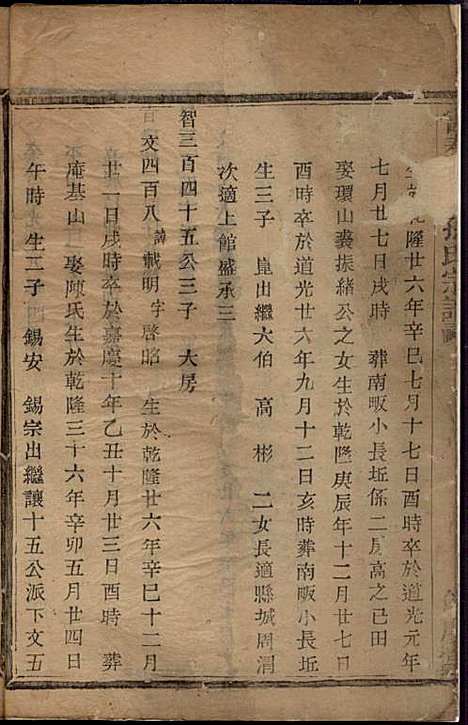 氏宗譜
隆廿六年辛巳七月十七日酉時卒於道光元年
七月廿七日戌時 葬南畈小長坵係二房高之已田
娶環山裘振緒公之女生於乾隆庚辰年十二月廿七日
酉時卒於道光廿六年九月十二日亥時葬南畈小長坵
生三子 崑出繼大伯 高 彬 二女長適縣城周渭
次適上館盛承三
智三百四十五公三子 大房
文四百八 諱載明 字啓昭 生於乾隆廿六年辛巳十二月
廿一日戌時卒於嘉慶十年乙丑十月廿三日酉時 葬
庵基山 娶陳氏生於乾隆三十六年辛卯五月廿四日
午時 生二子 錫安 錫宗出繼讓十五公派下文五